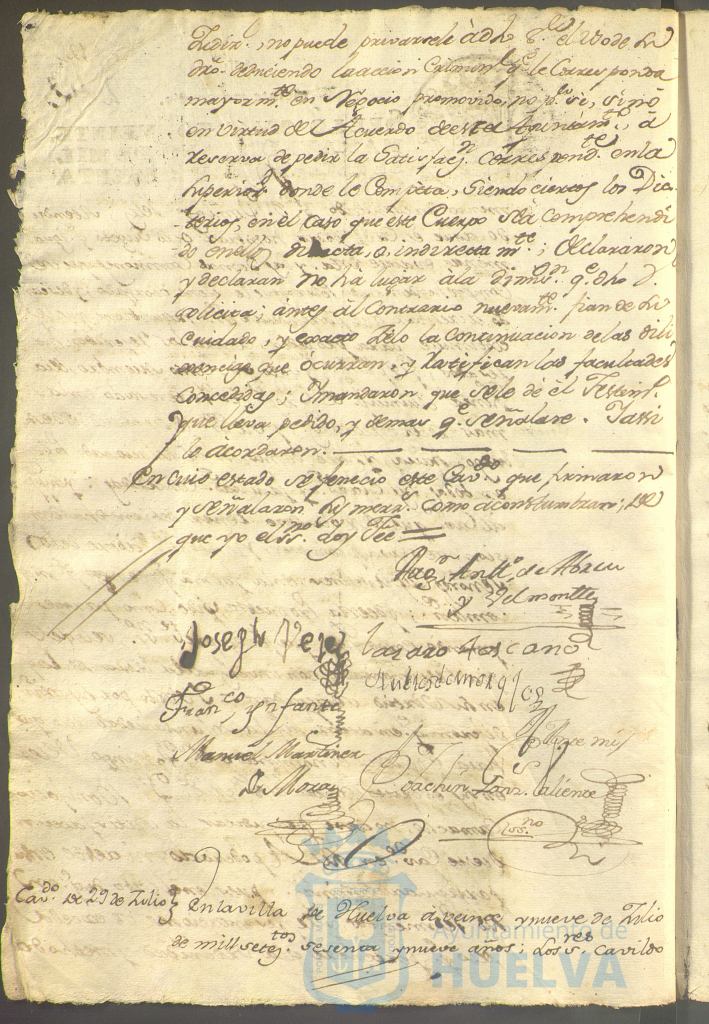 Zedir, no puede privarsele a dho Sr. el uso de su
dro. deduciendo la accion Criminl. qe. le Corresponda
mayormte. en Negocio promovido, no pr. si, sino
en virtud de Acuerdo de este Ayuntamto., â
reserva de pedir la Satisfacn. Correspondte. en la
Superiord. donde le Competa, siendo ciertos los Dic-
terios, en el caso que este Cuerpo sea Comprehendi
do en ellos directa, o indirectamte.; Declararon
y declaran no ha lugar â la qe. dho D.
solicita; ântes al Contrario nuevamte. fian de su
Cuidado, y exacto Zelo la Continuacion de las dili
xencias que ôcurran, y ratifican las facultades
Concedidas; Y mandaron que se le dé el Testimo.
que lleva pedido, y demas qe. señalare. Y assi
lo âcordaron.
En cuio estado se fenecio este Cavdo. que firmaron
y señalaron sus mercs. como acostumbran; de
que yo el ssno. doy fee =
Anto. de Abreu
y Velmonte
Joseph Vejar
Lazaro Toscano
Franco. Ynfante
Manuel Martinez
de Mora
Joachin Gonz. Caliente
ssno
Cavdo. de 29 de Julio
En la villa de Huelva a veinte y nueve de Julio
de mill setetos. sesenta y nueve años; Los Sres. Cavildo
Ayuntamiento de
HUELVA